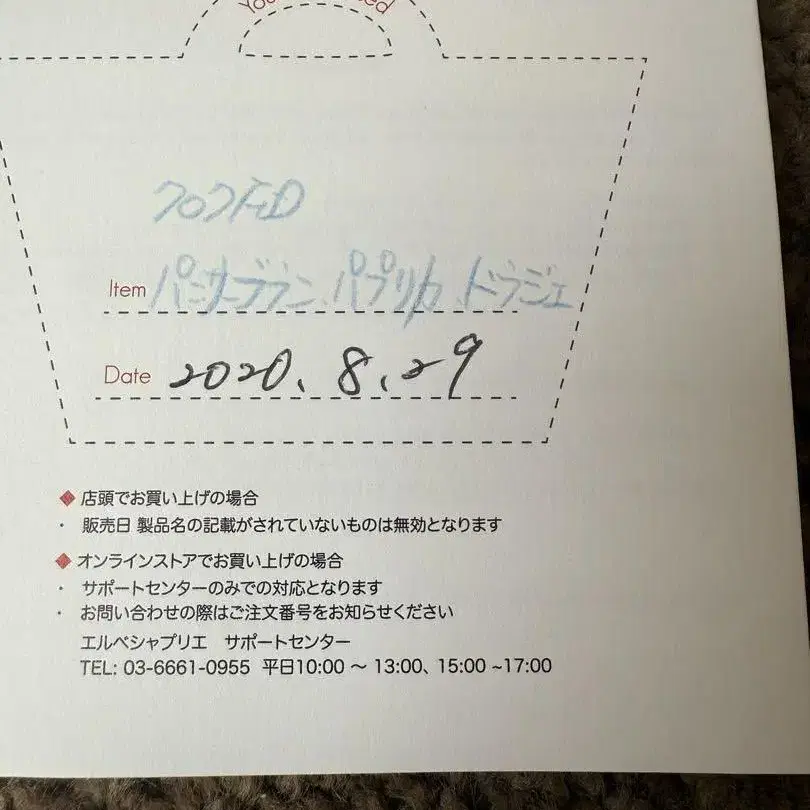 You
Item パンサーブラン、パプリカ、ドラジェ
Date 2020、8、29
◆ 店頭でお買い上げの場合
・ 販売日 製品名の記載がされていないものは無効となります
◆ オンラインストアでお買い上げの場合
・ サポートセンターのみでの対応となります
・ お問い合わせの際はご注文番号をお知らせください
エルベシャプリエ サポートセンター
TEL: 03-6661-0955 平日10:00 ～ 13:00、15:00 ~17:00